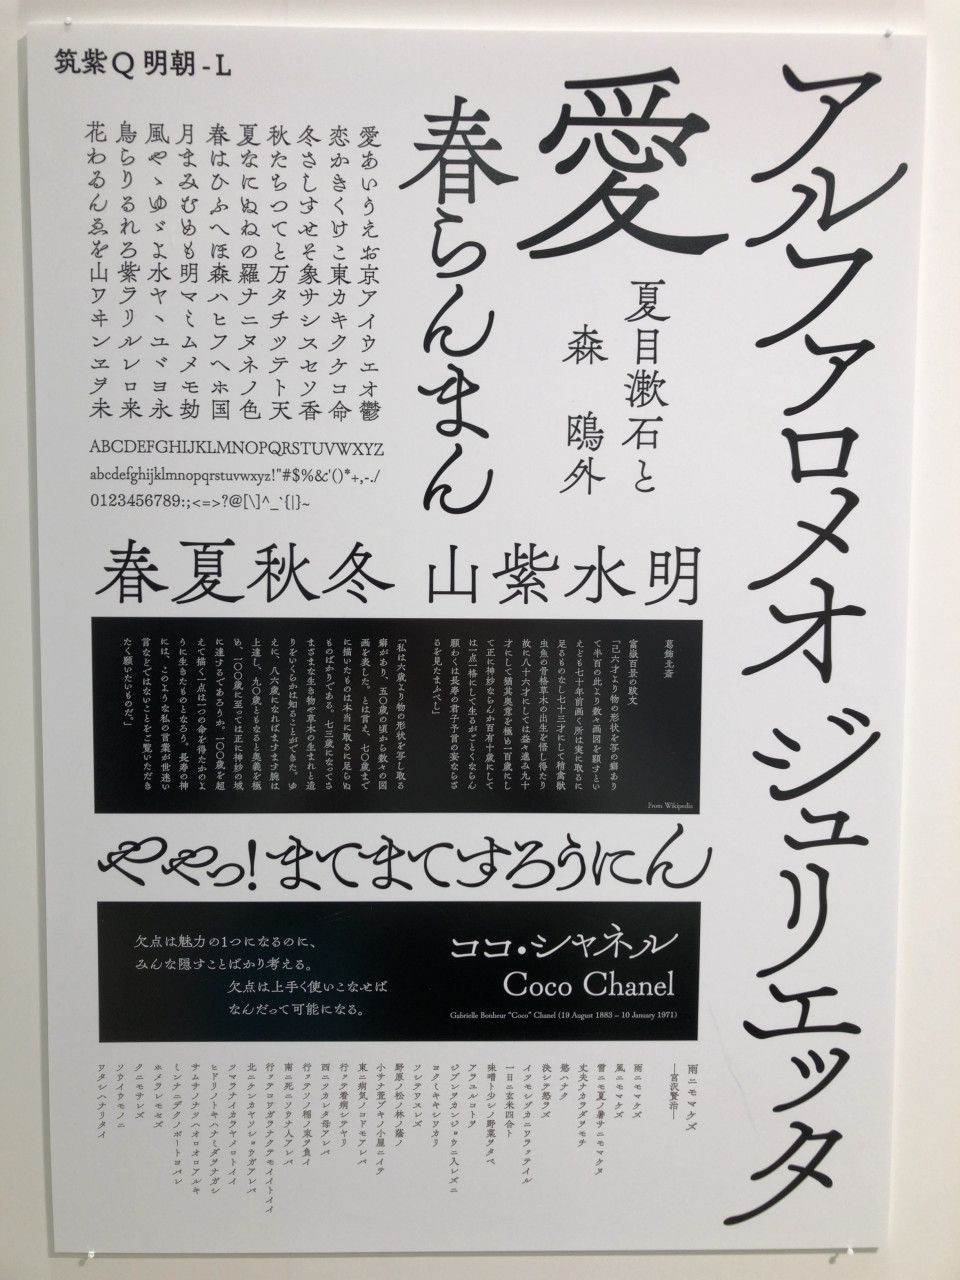 筑紫Q明朝-L
アルファロメオ ジュリエッタ
愛
春らんまん
夏目漱石と
森 鴎外
愛あいうえお京アイウエオ鬱
恋かきくけこ東カキクケコ命
冬さしすせそ象サシスセソ香
秋たちつてと万タチツテト天
夏なにぬねの羅ナニヌネノ色
春はひふへほ森ハヒフヘホ国
月まみむめも明マミムメモ劫
風やゝゆゞよ水ヤヽユヾヨ永
鳥らりるれろ紫ラリルレロ来
花わゐんゑを山ワヰンヱヲ未
ABCDEFGHIJKLMNOPQRSTUVWXYZ
abcdefghijklmnopqrstuvwxyz!"#$%&'()*+,-./
0123456789:;<=>?@[\]^_`{|}~
春夏秋冬 山紫水明
葛飾北斎
富嶽百景の跋文
「己六才より物の形状を写の癖あり
て半百の此より数々画図を顕すとい
えども七十年前画く所は実に取るに
足るものなし七十三才にして稍禽獣
虫魚の骨格草木の出生を悟し得たり
故に八十六才にしては益々進み九十
才にして猶其奥意を極め一百歳にし
て正に神妙ならんか百有十歳にして
は一点一格にして生るがごとくならん
願わくは長寿の君子予言の妄ならざ
るを見たまふべし」
「私は六歳より物の形状を写し取る
癖があり、五〇歳の頃から数々の図
画を表した。とは言え、七〇歳まで
に描いたものは本当に取るに足らぬ
ものばかりである。七三歳になってさ
まざまな生き物や草木の生まれと造
りをいくらかは知ることができた。ゆ
えに、八六歳になればますます腕は
上達し、九〇歳ともなると奥義を極
め、一〇〇歳に至っては正に神妙の域
に達するであろうか。一〇〇歳を超
えて描く一点は一つの命を得たかのよ
うに生きたものとなろう。長寿の神
には、このような私の言葉が世迷い
言などではないことをご覧いただき
たく願いたいものだ。」
From Wikipedia
ややっ!まてまてすろうにん
欠点は魅力の1つになるのに、
みんな隠すことばかり考える。
欠点は上手く使いこなせば
なんだって可能になる。
ココ・シャネル
Coco Chanel
Gabrielle Bonheur "Coco" Chanel (19 August 1883 – 10 January 1971)
雨ニモマケズ
―宮沢賢治―
雨ニモマケズ
風ニモマケズ
雪ニモ夏ノ暑サニモマケヌ
丈夫ナカラダヲモチ
慾ハナク
決シテ怒ラズ
イツモシヅカニワラッテイル
一日ニ玄米四合ト
味噌ト少シノ野菜ヲタベ
アラユルコトヲ
ジブンヲカンジョウニ入レズニ
ヨクミキキシワカリ
ソシテワスレズ
野原ノ松ノ林ノ蔭ノ
小サナ萱ブキノ小屋ニイテ
東ニ病気ノコドモアレバ
行ッテ看病シテヤリ
西ニツカレタ母アレバ
行ッテソノ稲ノ束ヲ負イ
南ニ死ニソウナ人アレバ
行ッテコワガラナクテモイイトイイ
北ニケンカヤソショウガアレバ
ツマラナイカラヤメロトイイ
ヒドリノトキハナミダヲナガシ
サムサノナツハオロオロアルキ
ミンナニデクノボートヨバレ
ホメラレモセズ
クニモサレズ
ソウイウモノニ
ワタシハナリタイ